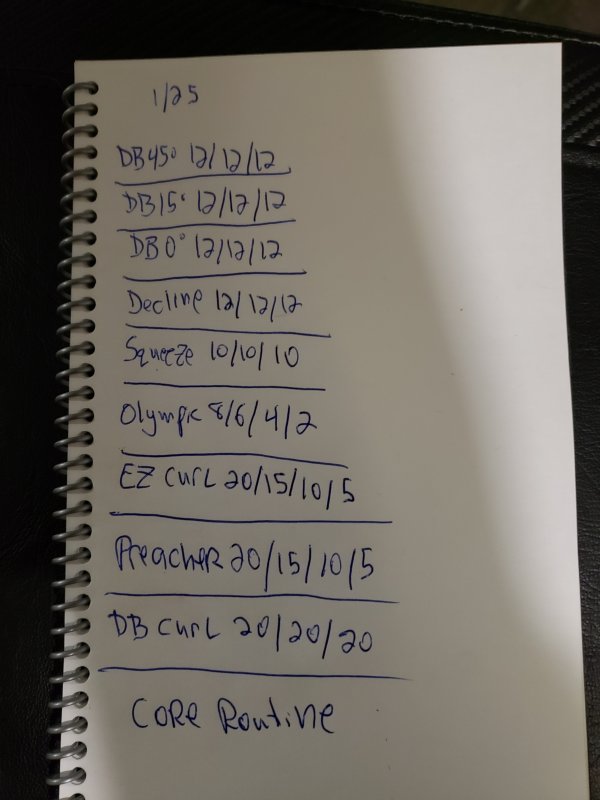 1/25
DB45° 12/12/12
DB15° 12/12/12
DB0° 12/12/12
Decline 12/12/12
Squeeze 10/10/10
Olympic 8/6/4/2
EZ CURL 20/15/10/5
Preacher 20/15/10/5
DB CURL 20/20/20
CORE ROUTINE